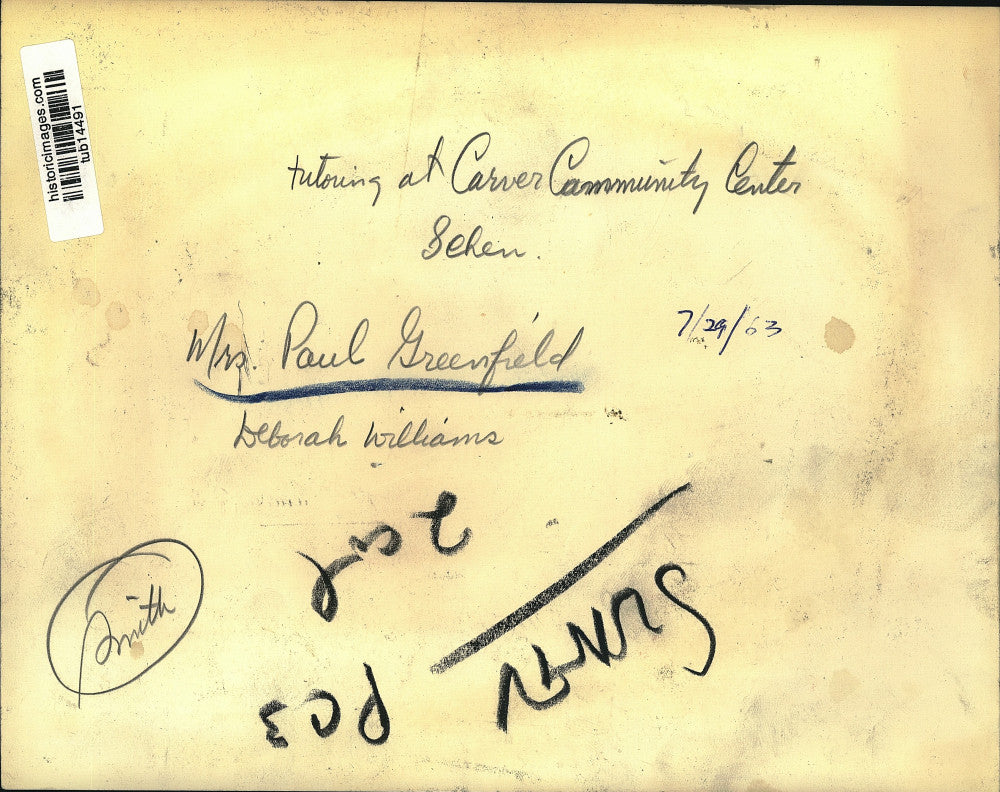 historicimages.com
tub14491
tutoring at Carver Community Center
Schen.
Mrs. Paul Greenfield
7/29/63
Deborah Williams
Smith
SUNDAY